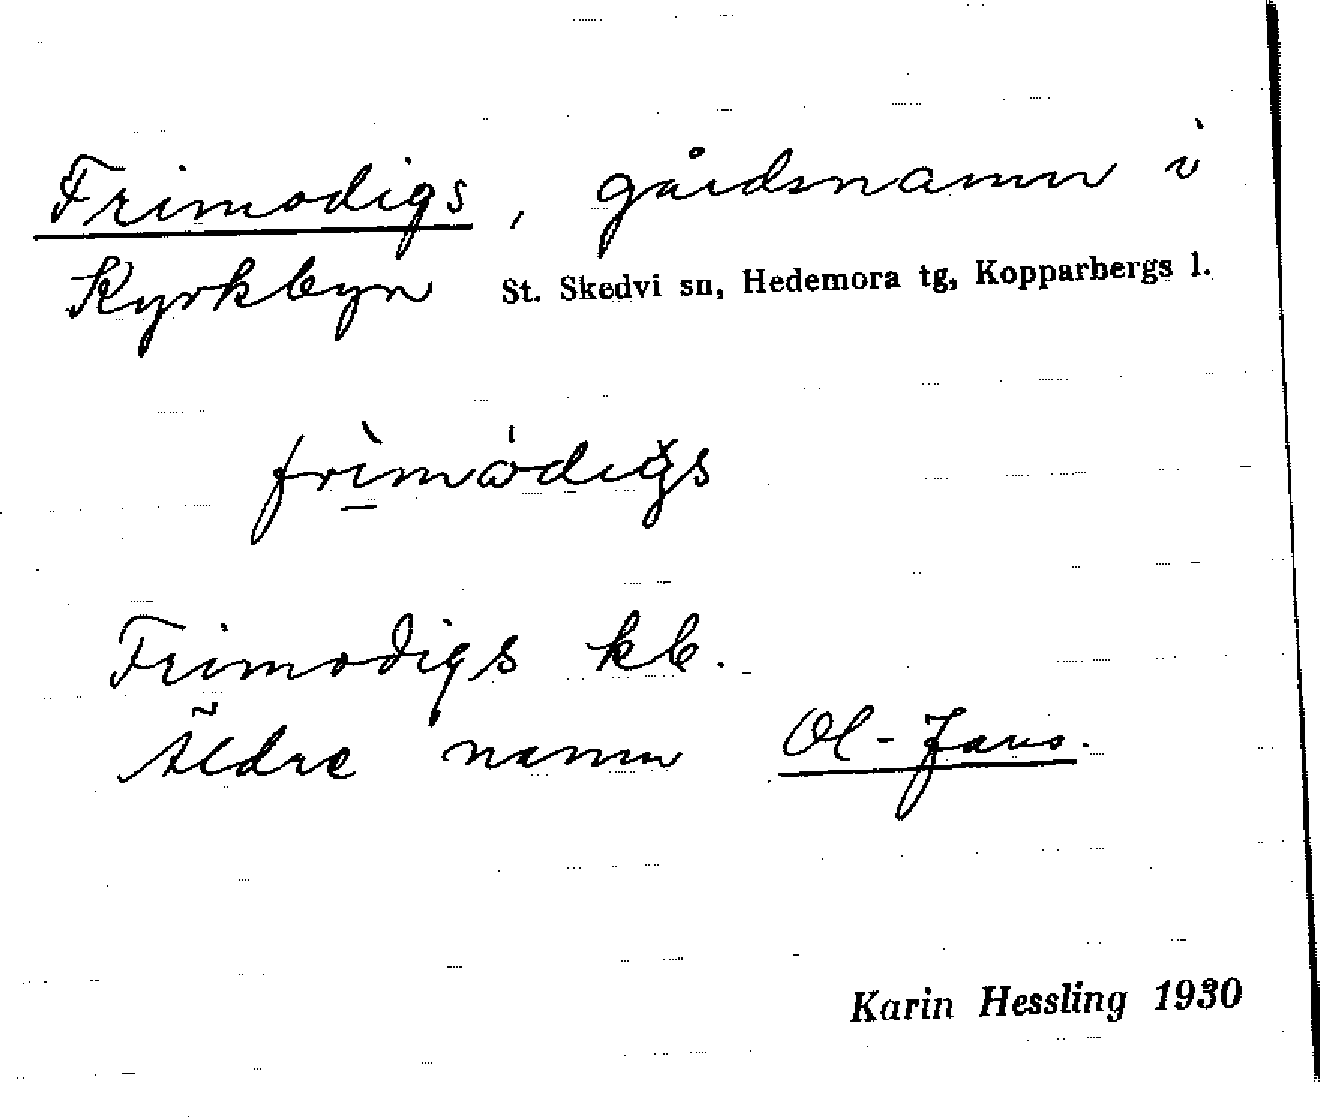 Frimodigs, gårdsnamn i
Kyrkbyn St. Skedvi sn, Hedemora tg, Kopparbergs l.
frìmódigs
Frimodigs kb.
Äldre namn Ol-Jans.
Karin Hessling 1930